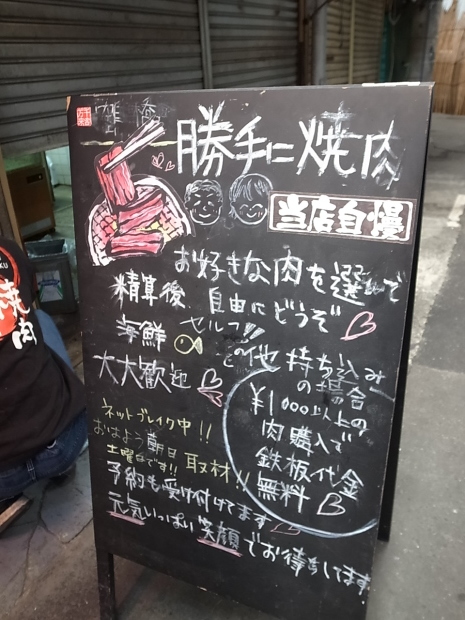 勝手に焼肉
当店自慢
お好きな肉を選んで
精算後 自由にどうぞ
セルフ!!
海鮮 その他 持ち込み
大大歓迎 の場合
¥1000以上の
肉購入で
鉄板代金
無料
ネットブレイク中!!
おはよう朝日
土曜日です!! 取材
予約も受け付けてます
元気いっぱい笑顔でお待ちしてます
焼
肉